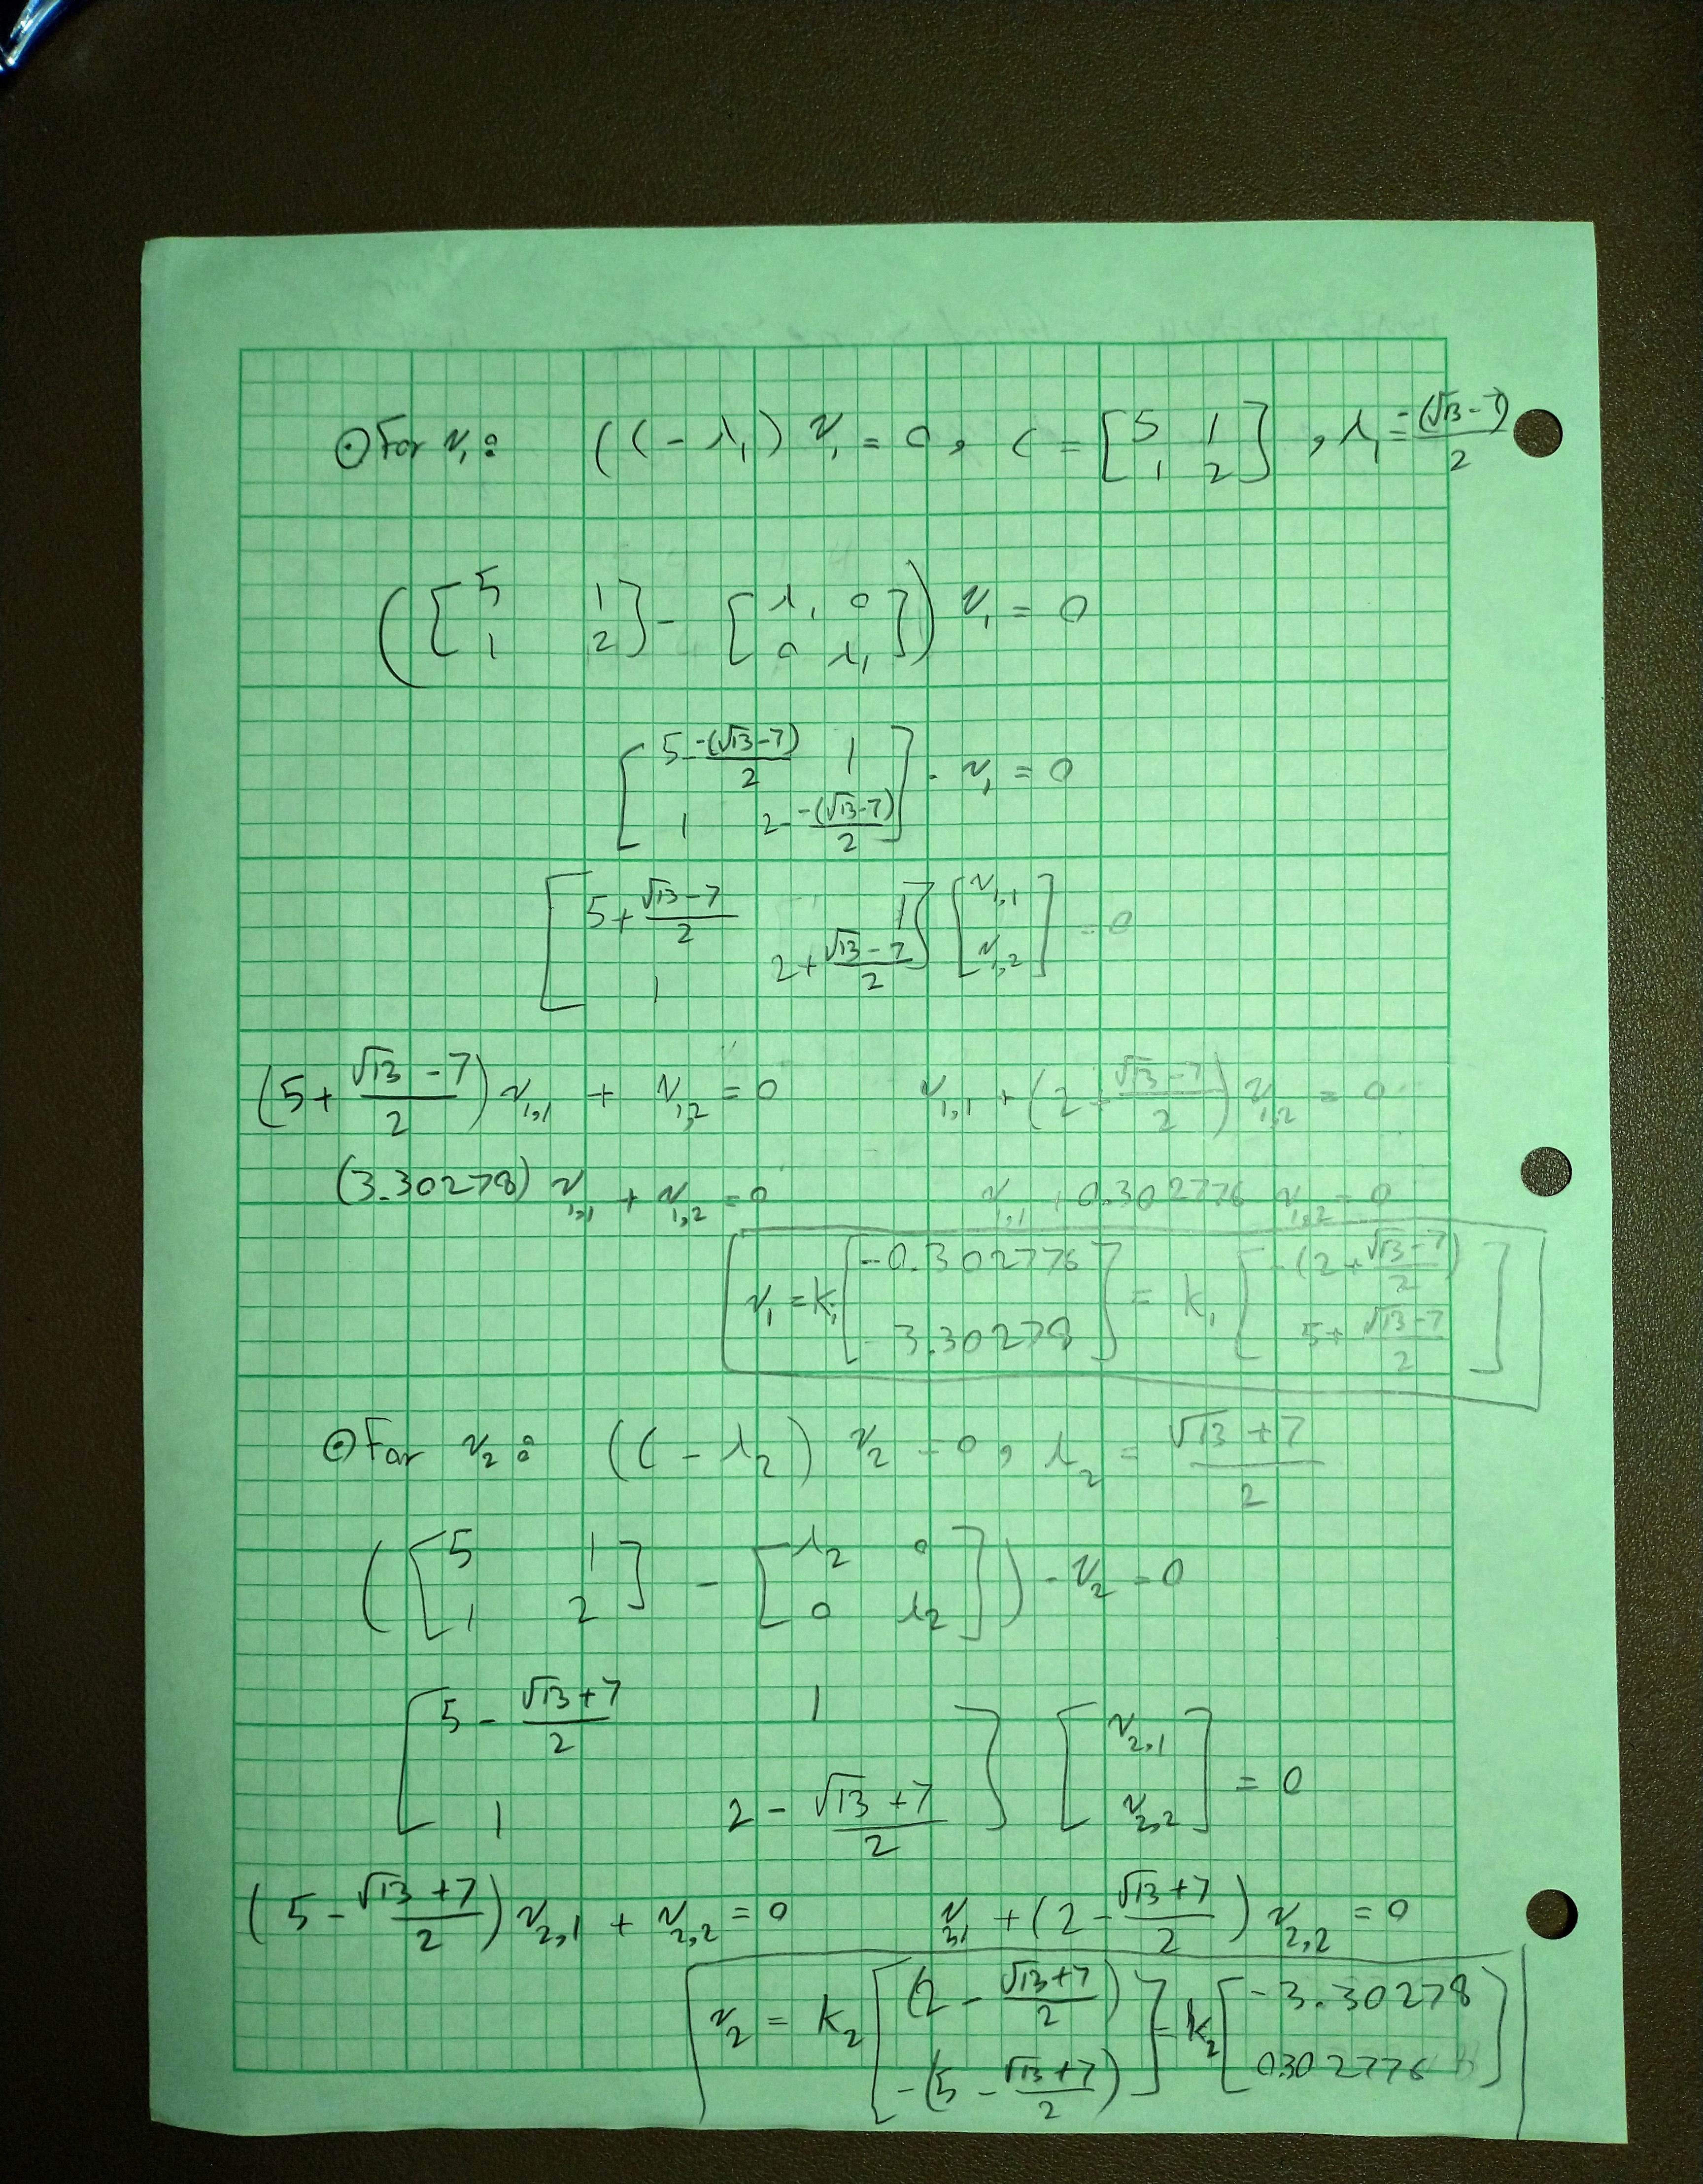 ⊙ For v₁: (C - λ₁) v₁ = 0, C = [5 1; 1 2], λ₁ = -(√13 - 7)/2
([5 1; 1 2] - [λ₁ 0; 0 λ₁]) v₁ = 0
[5 - -(√13-7)/2 1; 1 2 - -(√13-7)/2] · v₁ = 0
[5 + (√13-7)/2 1; 1 2 + (√13-7)/2] [v₁,₁; v₁,₂] = 0
(5 + (√13-7)/2) v₁,₁ + v₁,₂ = 0 v₁,₁ + (2 + (√13-7)/2) v₁,₂ = 0
(3.30278) v₁,₁ + v₁,₂ = 0 v₁,₁ + 0.302776 v₁,₂ = 0
v₁ = k₁ [-0.302776; -3.30278] = k₁ [-(2 + (√13-7)/2); 5 + (√13-7)/2]
⊙ For v₂: (C - λ₂) v₂ = 0, λ₂ = (√13 + 7)/2
([5 1; 1 2] - [λ₂ 0; 0 λ₂]) · v₂ = 0
[5 - (√13+7)/2 1; 1 2 - (√13+7)/2] [v₂,₁; v₂,₂] = 0
(5 - (√13+7)/2) v₂,₁ + v₂,₂ = 0 v₂,₁ + (2 - (√13+7)/2) v₂,₂ = 0
v₂ = k₂ [(2 - (√13+7)/2); -(5 - (√13+7)/2)] = k₂ [-3.30278; 0.302776]